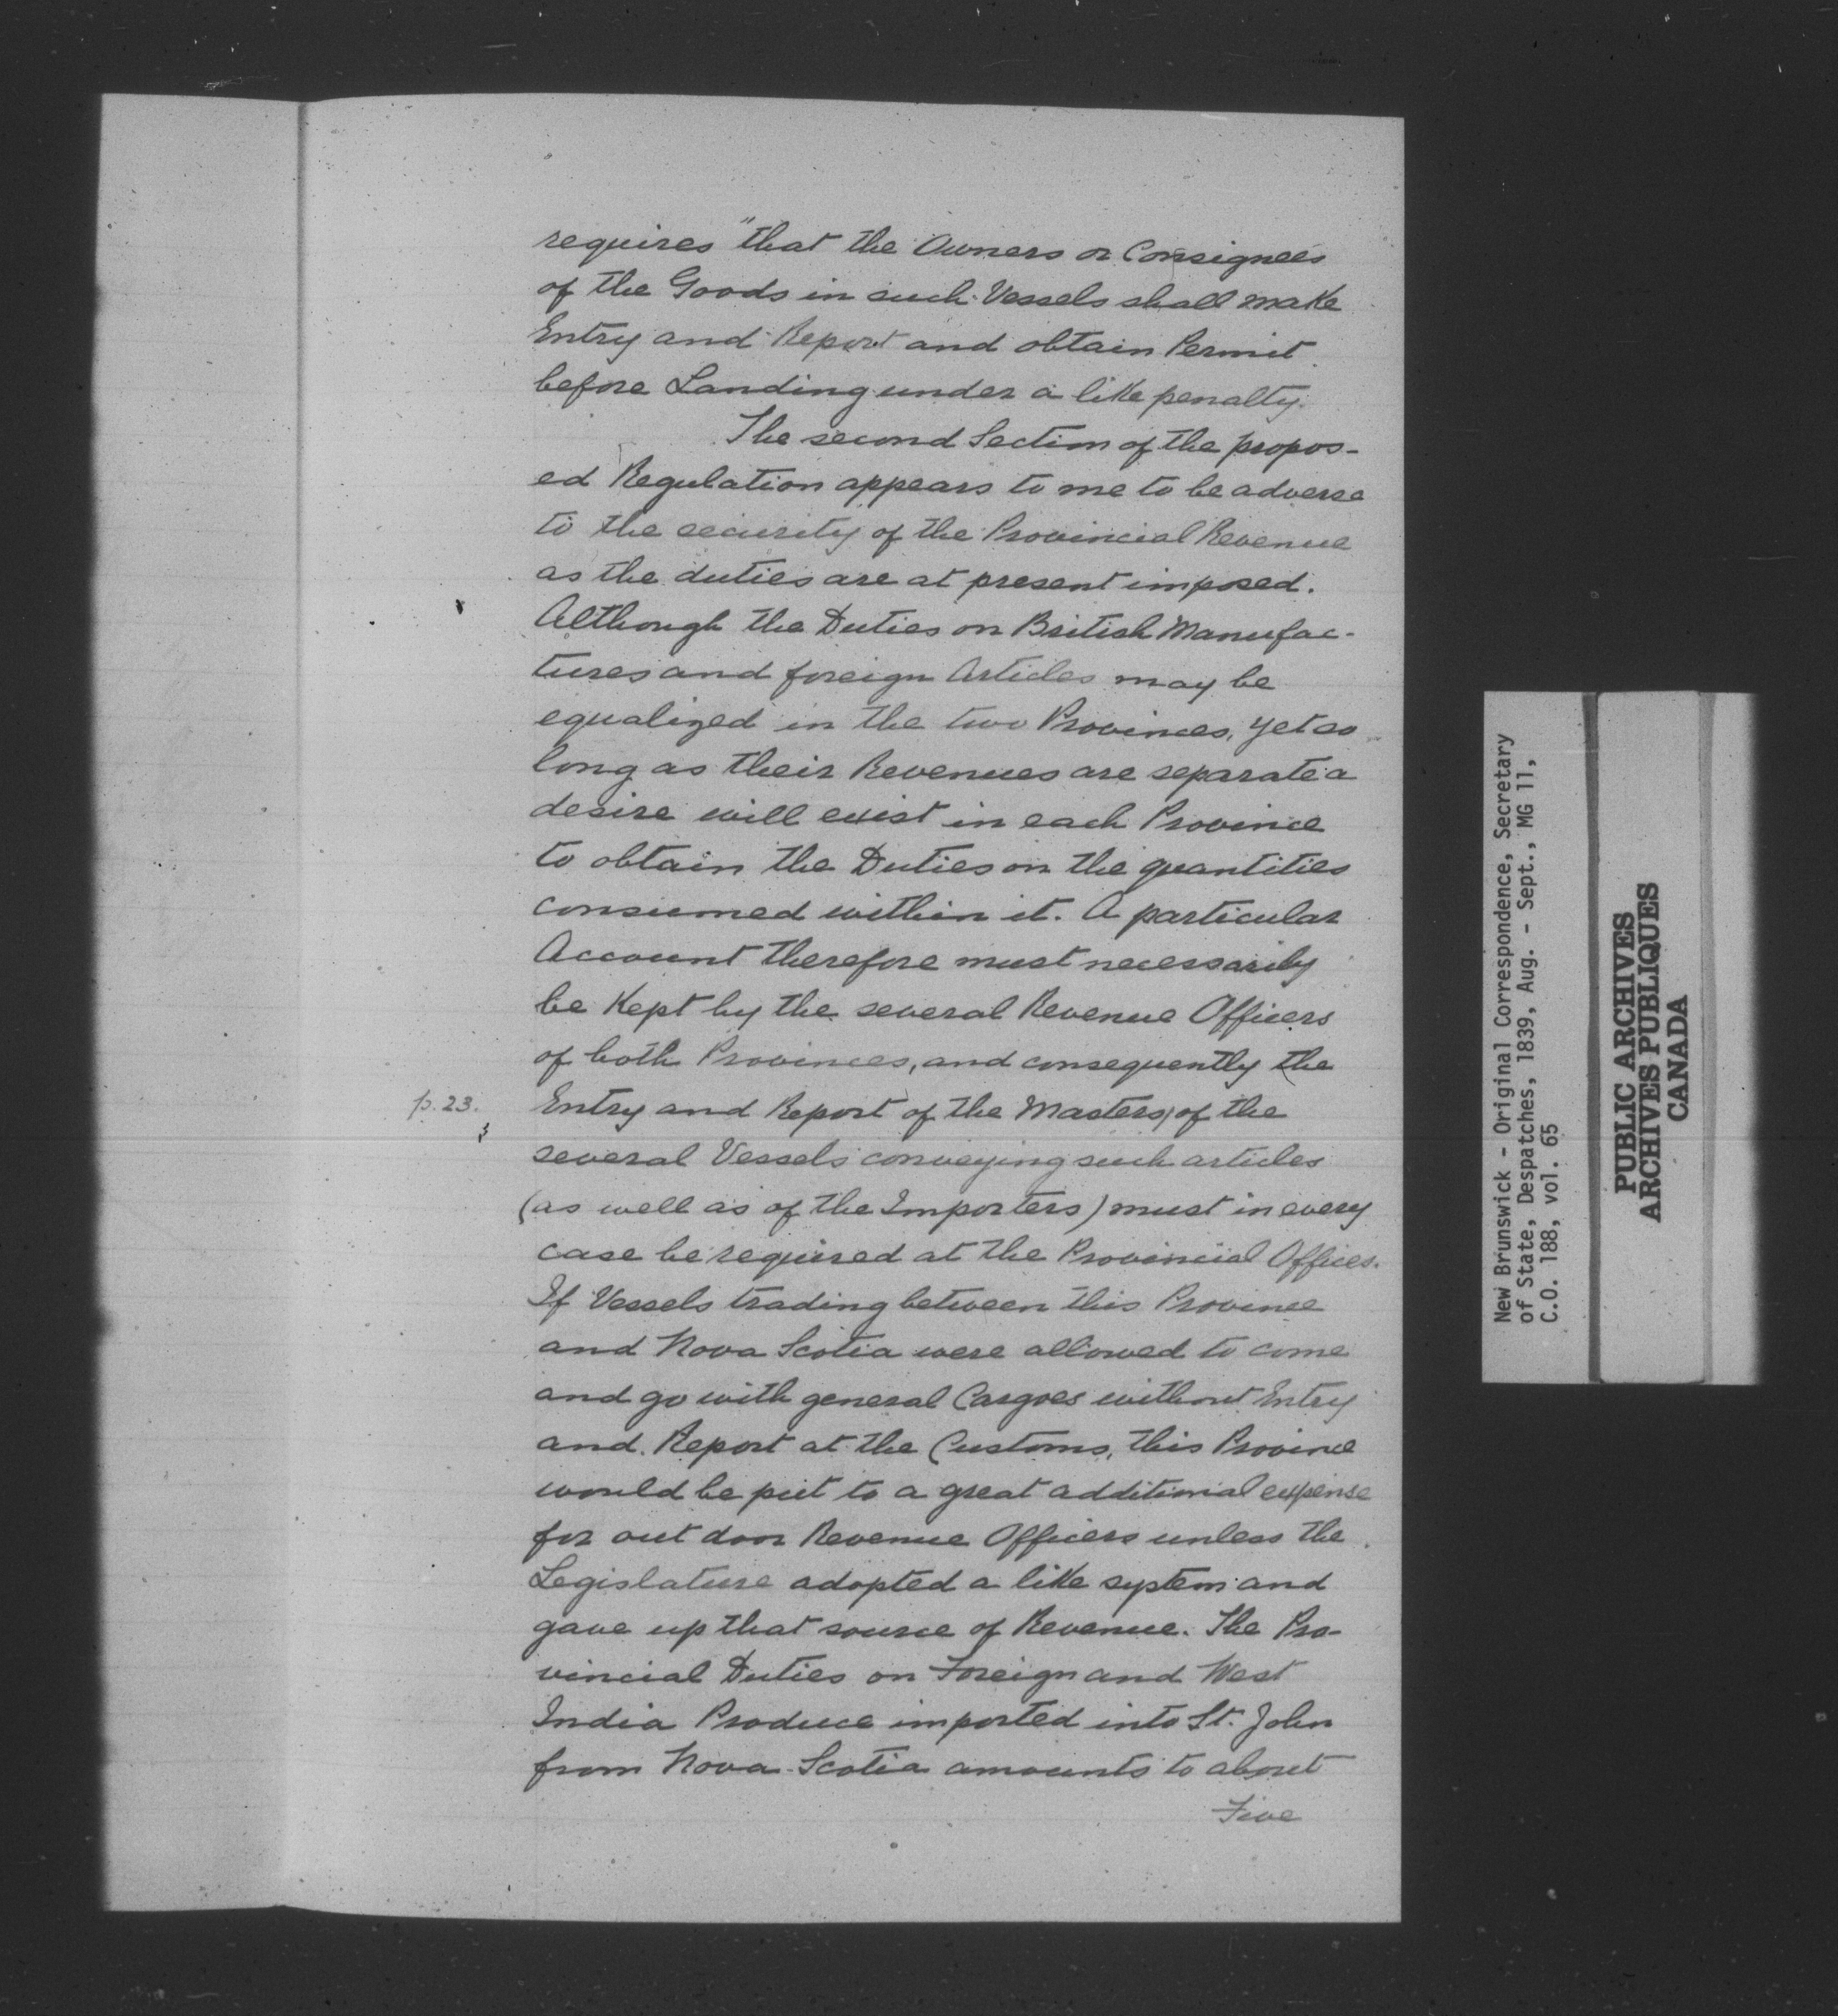 requires "that the Owners or Consignees
of the Goods in such Vessels shall make
Entry and Report and obtain Permit
before Landing under a like penalty.
The second Section of the propos-
ed Regulation appears to me to be adverse
to the security of the Provincial Revenue
as the duties are at present imposed.
Although the Duties on British Manufac-
tures and foreign Articles may be
equalized in the two Provinces, yet so
long as their Revenues are separate a
desire will exist in each Province
to obtain the Duties on the quantities
consumed within it. A particular
Account therefore must necessarily
be Kept by the several Revenue Officers
of both Provinces, and consequently the
p. 23. Entry and Report of the Masters, of the
several Vessels conveying such articles
(as well as of the Importers) must in every
case be required at the Provincial Offices.
If Vessels trading between this Province
and Nova Scotia were allowed to come
and go with general Cargoes without Entry
and Report at the Customs, this Province
would be put to a great additional expense
for out door Revenue Officers unless the
Legislature adopted a like system and
gave up that source of Revenue. The Pro-
vincial Duties on Foreign and West
India Produce imported into St. John
from Nova Scotia amounts to about
Five
New Brunswick - Original Correspondence, Secretary
of State, Despatches, 1839, Aug. - Sept., MG 11,
C.O. 188, vol. 65
PUBLIC ARCHIVES
ARCHIVES PUBLIQUES
CANADA